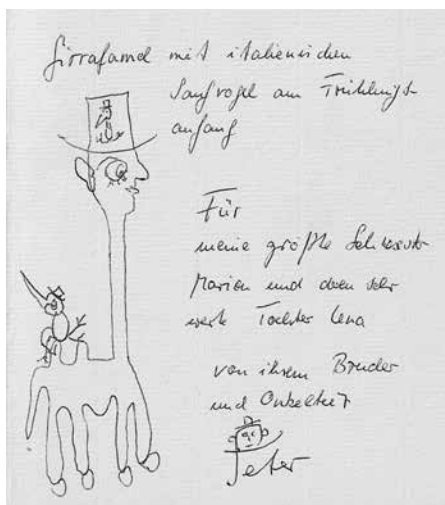 Girrafamel mit italienischen
Saufvogel am Frühlings-
anfang
Für
meine größte Schwester
Marion und deren sehr
werte Tochter Lena
von ihrem Bruder
und Onkeltier
Peter